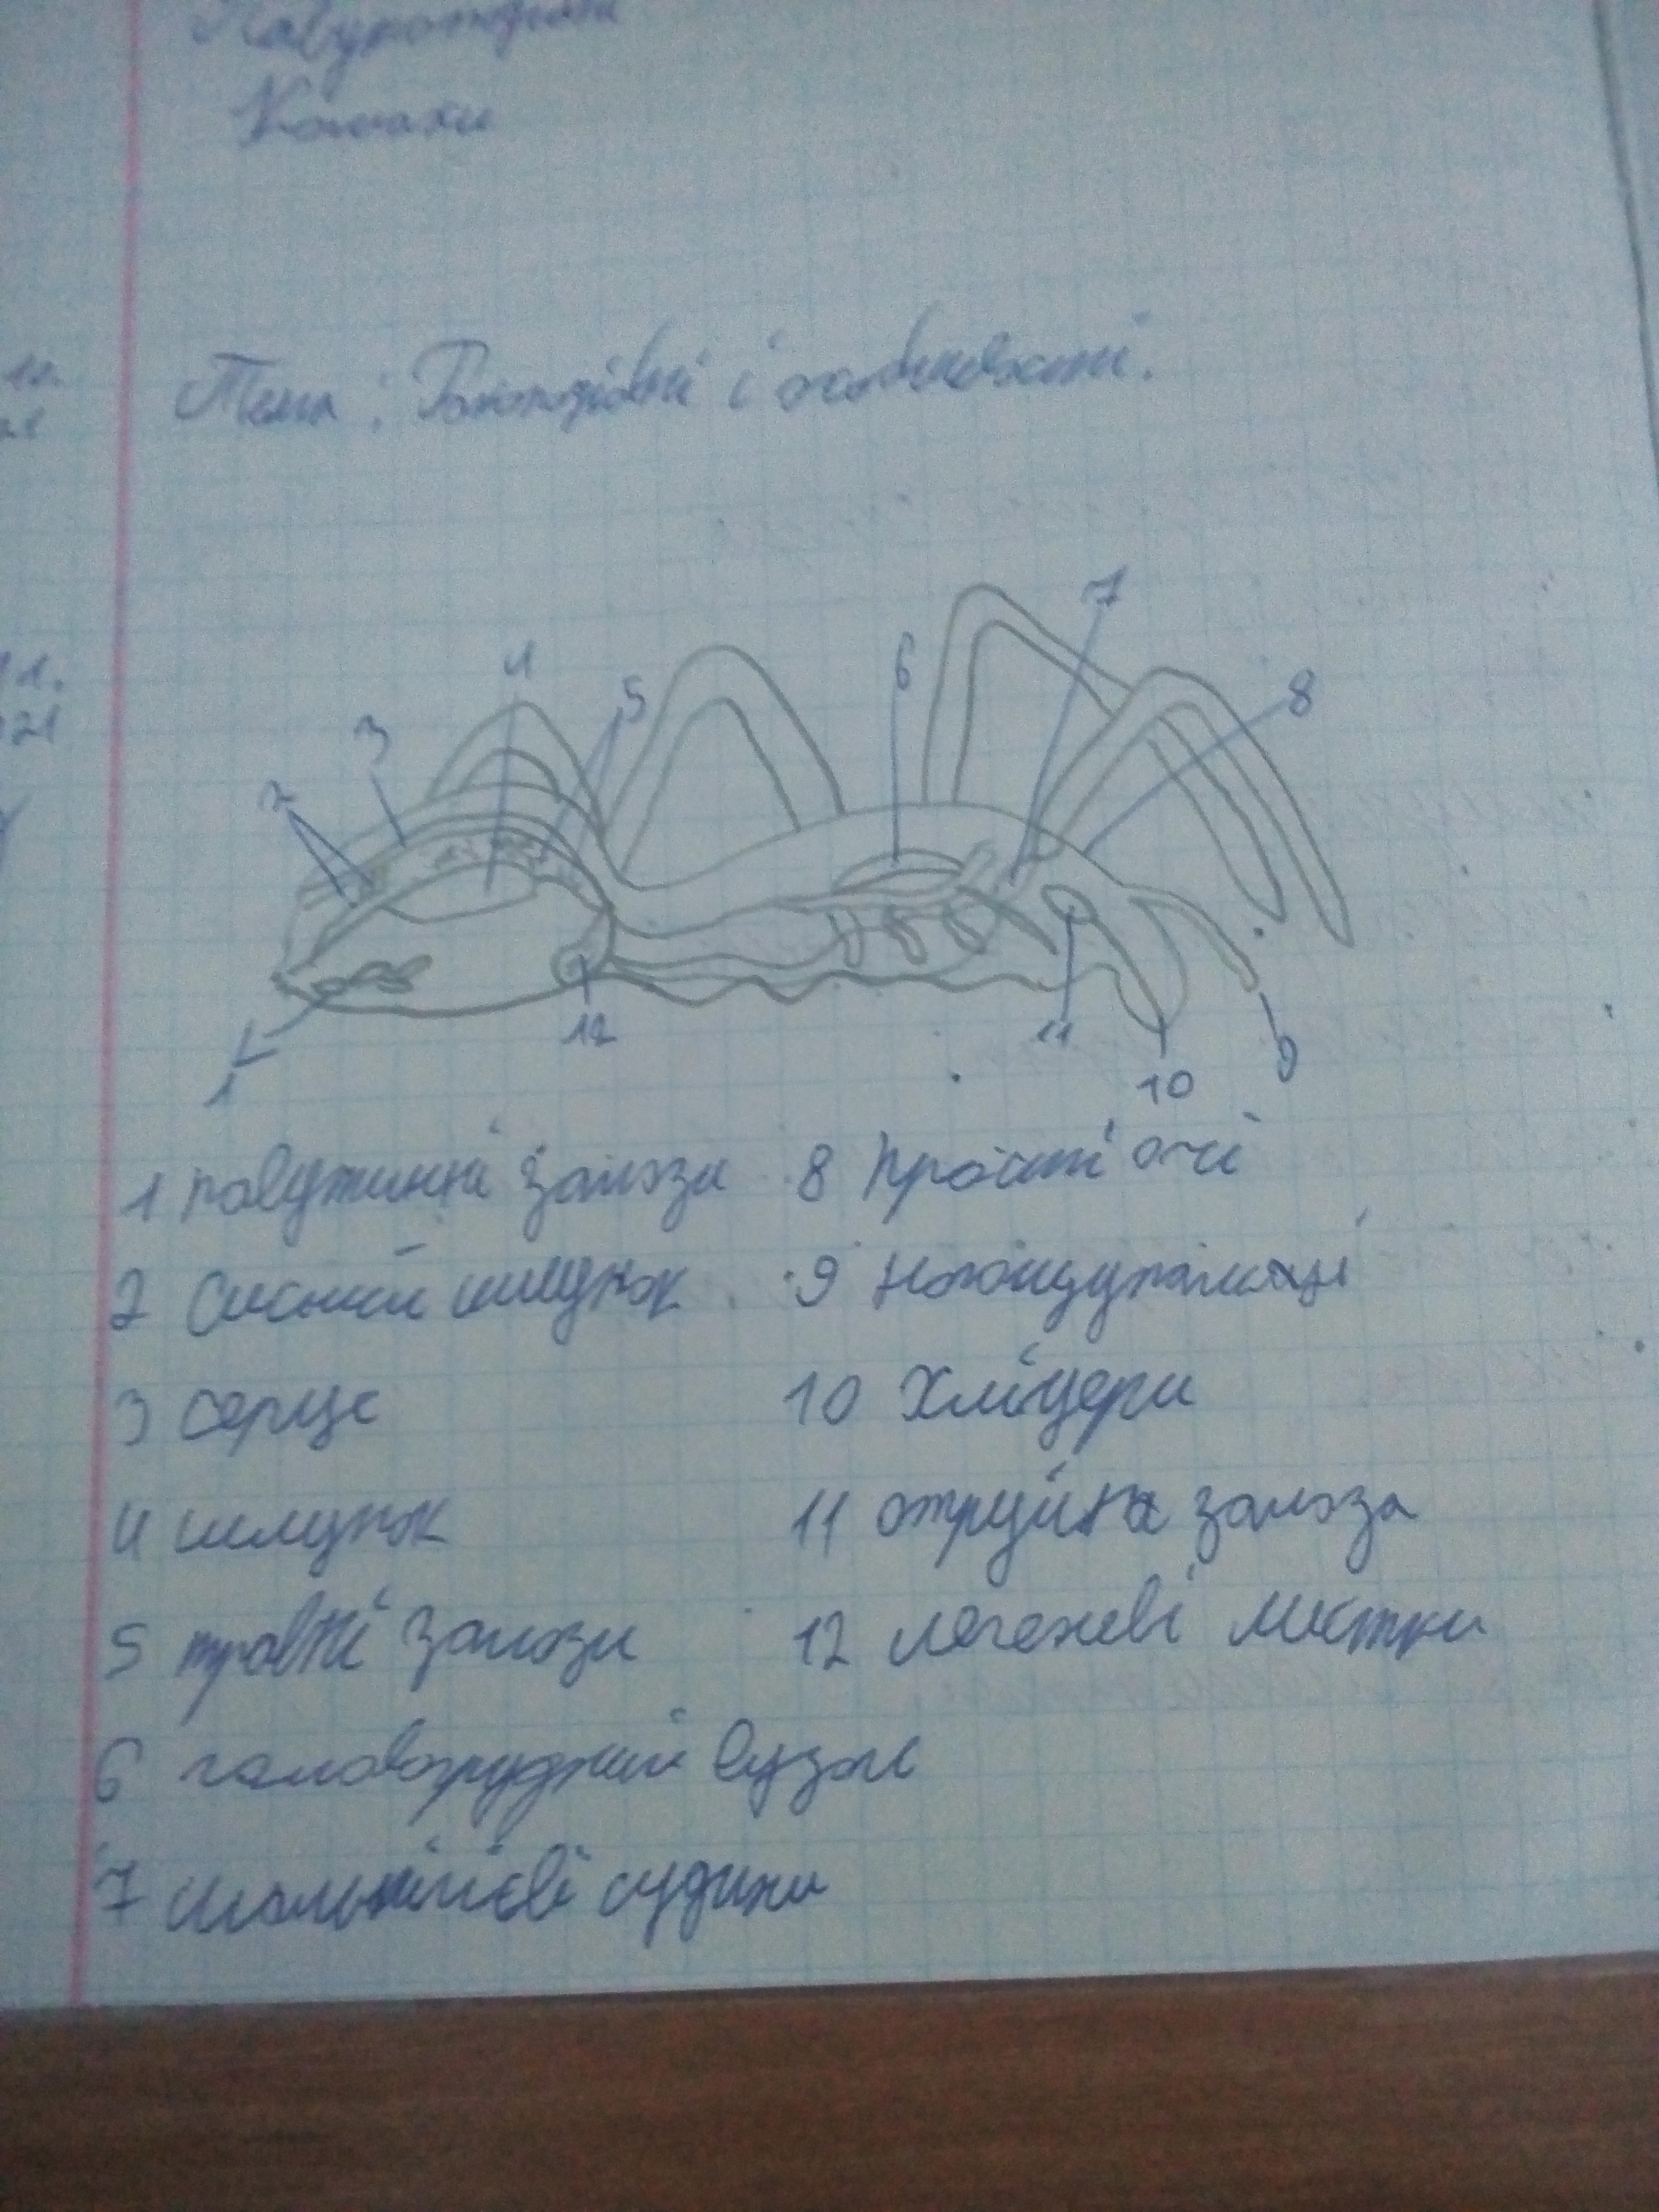 Павукоподібні
Комахи
Тема: і особливості.
4
5
6
7
8
3
2
1
12
11
10
9
1 павутинні залози
2 сисний шлунок
3 серце
4 шлунок
5 травні залози
6 головогрудний вузол
7 мальпігієві судини
8 прості очі
9 ногощупальці
10 хліцери
11 отруйна залоза
12 легеневі містки